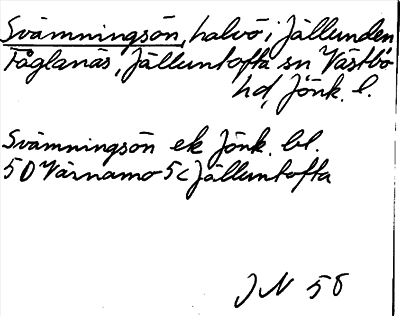 Svämningsön, halvö i Jällunden
Fåglanäs, Jälluntofta sn Västbo
hd, Jönk. l.
Svämningsön ek Jönk. bl.
5D Värnamo 5c Jälluntofta
JN 58